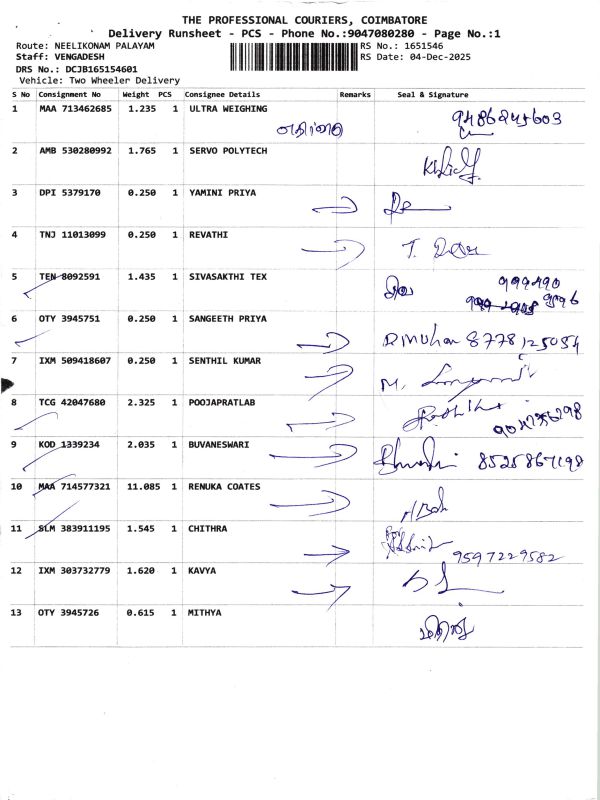 THE PROFESSIONAL COURIERS, COIMBATORE
Delivery Runsheet - PCS - Phone No.:9047080280 - Page No.:1
Route: NEELIKONAM PALAYAM
RS No.: 1651546
Staff: VENGADESH
RS Date: 04-Dec-2025
DRS No.: DCJB165154601
Vehicle: Two Wheeler Delivery
S No Consignment No Weight PCS Consignee Details Remarks Seal & Signature
1 MAA 713462685 1.235 1 ULTRA WEIGHING
2 AMB 530280992 1.765 1 SERVO POLYTECH
3 DPI 5379170 0.250 1 YAMINI PRIYA
4 TNJ 11013099 0.250 1 REVATHI
5 TEN 8092591 1.435 1 SIVASAKTHI TEX
6 OTY 3945751 0.250 1 SANGEETH PRIYA
8778125084
7 IXM 509418607 0.250 1 SENTHIL KUMAR
8 TCG 42047680 2.325 1 POOJAPRATLAB
9047356798
9 KOD 1339234 2.035 1 BUVANESWARI
8525867198
10 MAA 714577321 11.085 1 RENUKA COATES
11 SLM 383911195 1.545 1 CHITHRA
9597229582
12 IXM 303732779 1.620 1 KAVYA
13 OTY 3945726 0.615 1 MITHYA